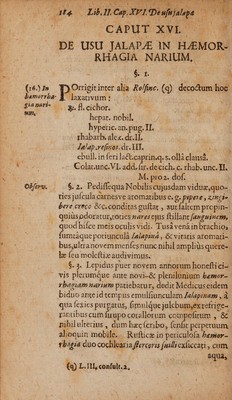 184 Lib. II. Cap. XVI. De usu jalapæ
CAPUT XVI.
DE USU JALAPÆ IN HÆMOR-
RHAGIA NARIUM.
§. 1.
(16.) In
hæmorrha-
gia nari-
um.
POrrigit inter alia Rolfinc. (q) decoctum hoc
laxativum:
fl. cichor.
hepat. nobil.
hyperic. an. pug. II.
rhabarb. alex. dr. II.
Jalap. resinos. dr. III.
ebull. in seri lact. caprin. q. s. ollâ clausâ.
Colat. unc. VI. add. syr. de cich. c. rhab. unc. II.
M. pro 2. dos.
Observ.
§. 2. Pedissequa Nobilis cujusdam viduæ, quo-
ties juscula carnesve aromatibus e. g. pipere, zingi-
bere croco &c. conditas gustat, aut saltem propin-
quius odorat, toties nares ejus stillant sanguinem,
quod hisce meis oculis vidi. Tuta vená in brachio,
sumtâque potiunculâ Jalapinâ, & vitatis aromati-
bus, ultra novem menses nunc nihil amplius quere-
læ seu molestiæ audivimus.
§. 3. Lepidus puer novem annorum honesti ci-
vis plerumque ante novi- & plenilunium hæmor-
rhagiam narium patiebatur, dedit Medicus eidem
biduo ante id tempus emulsiunculam Jalapinam, à
qua sexies purgatus, similique julebum, ex refrige-
rantibus cum syrupo corallorum compositum, &
nihil ulterius, dum hæc scribo, sensit perpetuum
alioquin mobile. Rusticæ in periculosa hæmor-
rhagia duo cochlearia stercoris suilli exsiccati, cum
aqua,
(q) L. III. consult. 2.